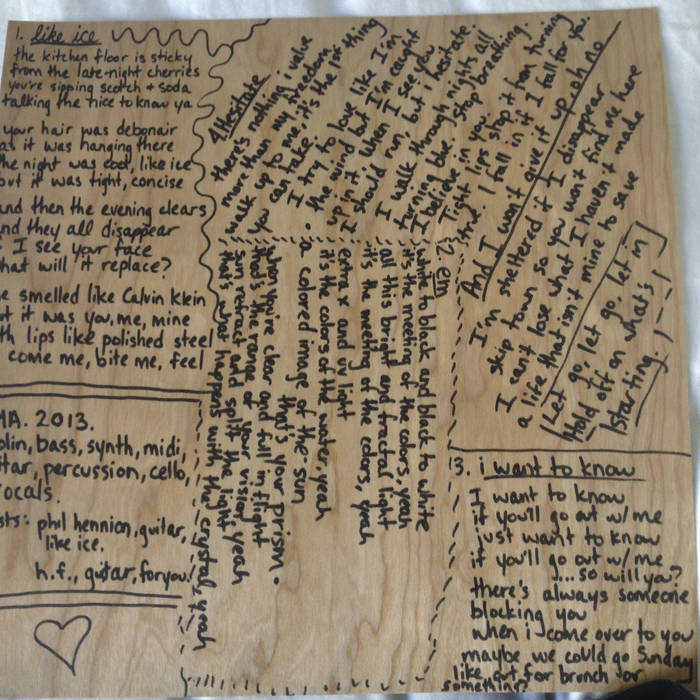 1. like ice
the kitchen floor is sticky
from the late-night cherries
you're sipping scotch + soda
talking the nice to know ya
your hair was debonair
as it was hanging there
the night was cool, like ice
but it was tight, concise
and then the evening clears
and they all disappear
if I see your face
what will it replace?
smelled like Calvin Klein
but it was you, me, mine
with lips like polished steel
come me, bite me, feel
MA. 2013.
violin, bass, synth, midi,
guitar, percussion, cello,
vocals.
phil hennion, guitar,
like ice.
h.f., guitar, foryou.
Hesitate
there's nothing i value
more than my freedom
walk up to me, it's the 1st thing
you can take.
I try to love like I'm
the wind but I'm caught
up in it when I see you
I should run, but i hesitate.
I walk through nights all
turning blue. Stop breathing.
I believe in you.
Tight lips stop it from turning
true. I fall in if I fall for you.
And I won't give it up, oh no
I'm sheltered if I disappear
skip town so you won't find me here
I can't lose what I haven't made
a life that isn't mine to save
Let go, let go, let in
Hold off on what's
starting.
12. em
white to black and black to white
it's the meeting of the colors, yeah
all this bright and fractal light
it's the meeting of the colors, yeah
extra x and uv light
it's the colors of the water, yeah
a colored image of the sun
that's your prism.
when you're clear and full in flight
that's the range of your vision, yeah
sun refract and split the light
that's what happens with the crystal, yeah
13. i want to know
I want to know
if you'll go out w/ me
just want to know
if you'll go out w/ me
...so will you?
there's always someone
blocking you
when i come over to you
maybe we could go Sunday
like out for brunch or
something?